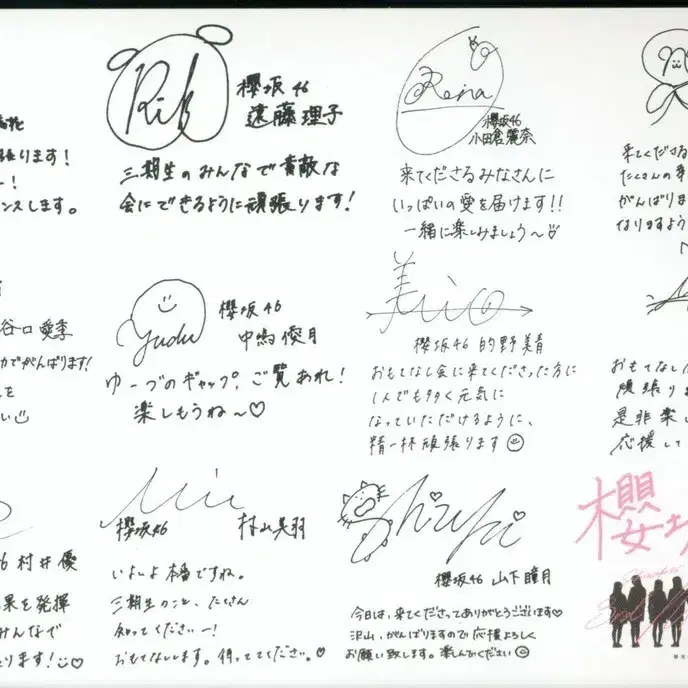 張ります！
ー！
ンスします。
Rik
櫻坂46
遠藤理子
三期生のみんなで素敵な
会にできるように頑張ります！
Rena
櫻坂46
小田倉麗奈
来てくださるみなさんに
いっぱいの愛を届けます！！
一緒に楽しみましょう〜
来てくださる
たくさんの
がんばりま
なりますよう
谷口愛季
でがんばります！
を
い
yudu
櫻坂46
中嶋優月
ゆーづのギャップ、ご覧あれ！
楽しもうね〜♡
美
Mio
櫻坂46 的野美青
おもてなし会に来てくださった方に
1人でも多く元気に
なっていただけるように、
精一杯頑張ります
おもてなし
頑張りま
是非楽し
応援して
6 村井優
果を発揮
みんなで
ります！♡
Miu
櫻坂46 村山美羽
いよいよ本番ですね。
三期生のこと、たくさん
知ってくださいー！
おもてなしします。待っててください。♡
Shizuki
櫻坂46 山下瞳月
今日は、来てくださってありがとうございます♡
沢山、がんばりますので応援よろしく
お願い致します。楽しんでください
櫻